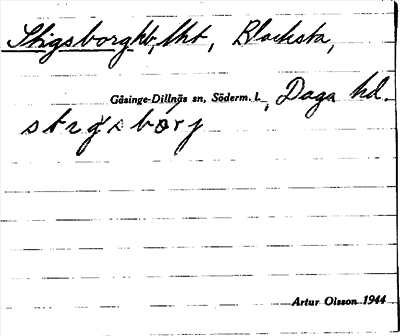 Stigsborg hb, lht, Blacksta,
Gåsinge-Dillnäs sn, Söderm. l., Daga hd.
stigsbörj
Artur Olsson 1944